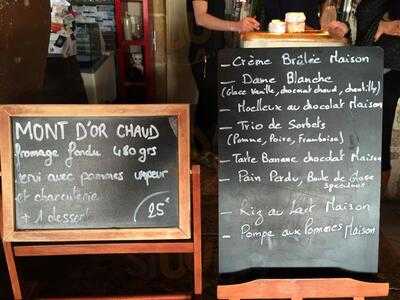 MONT D'OR CHAUD
fromage fondu 480 grs
servi avec pommes vapeur
et charcuterie
+ 1 dessert
25€
- Crème Brûlée Maison
- Dame Blanche
(Glace Vanille, chocolat chaud, chantilly)
- Moelleux au chocolat Maison
- Trio de Sorbets
(Pomme, Poire, Framboise)
- Tarte Banane chocolat Maison
- Pain Perdu, Boule de Glace
speculoos
- Riz au Lait Maison
- Pompe aux Pommes Maison